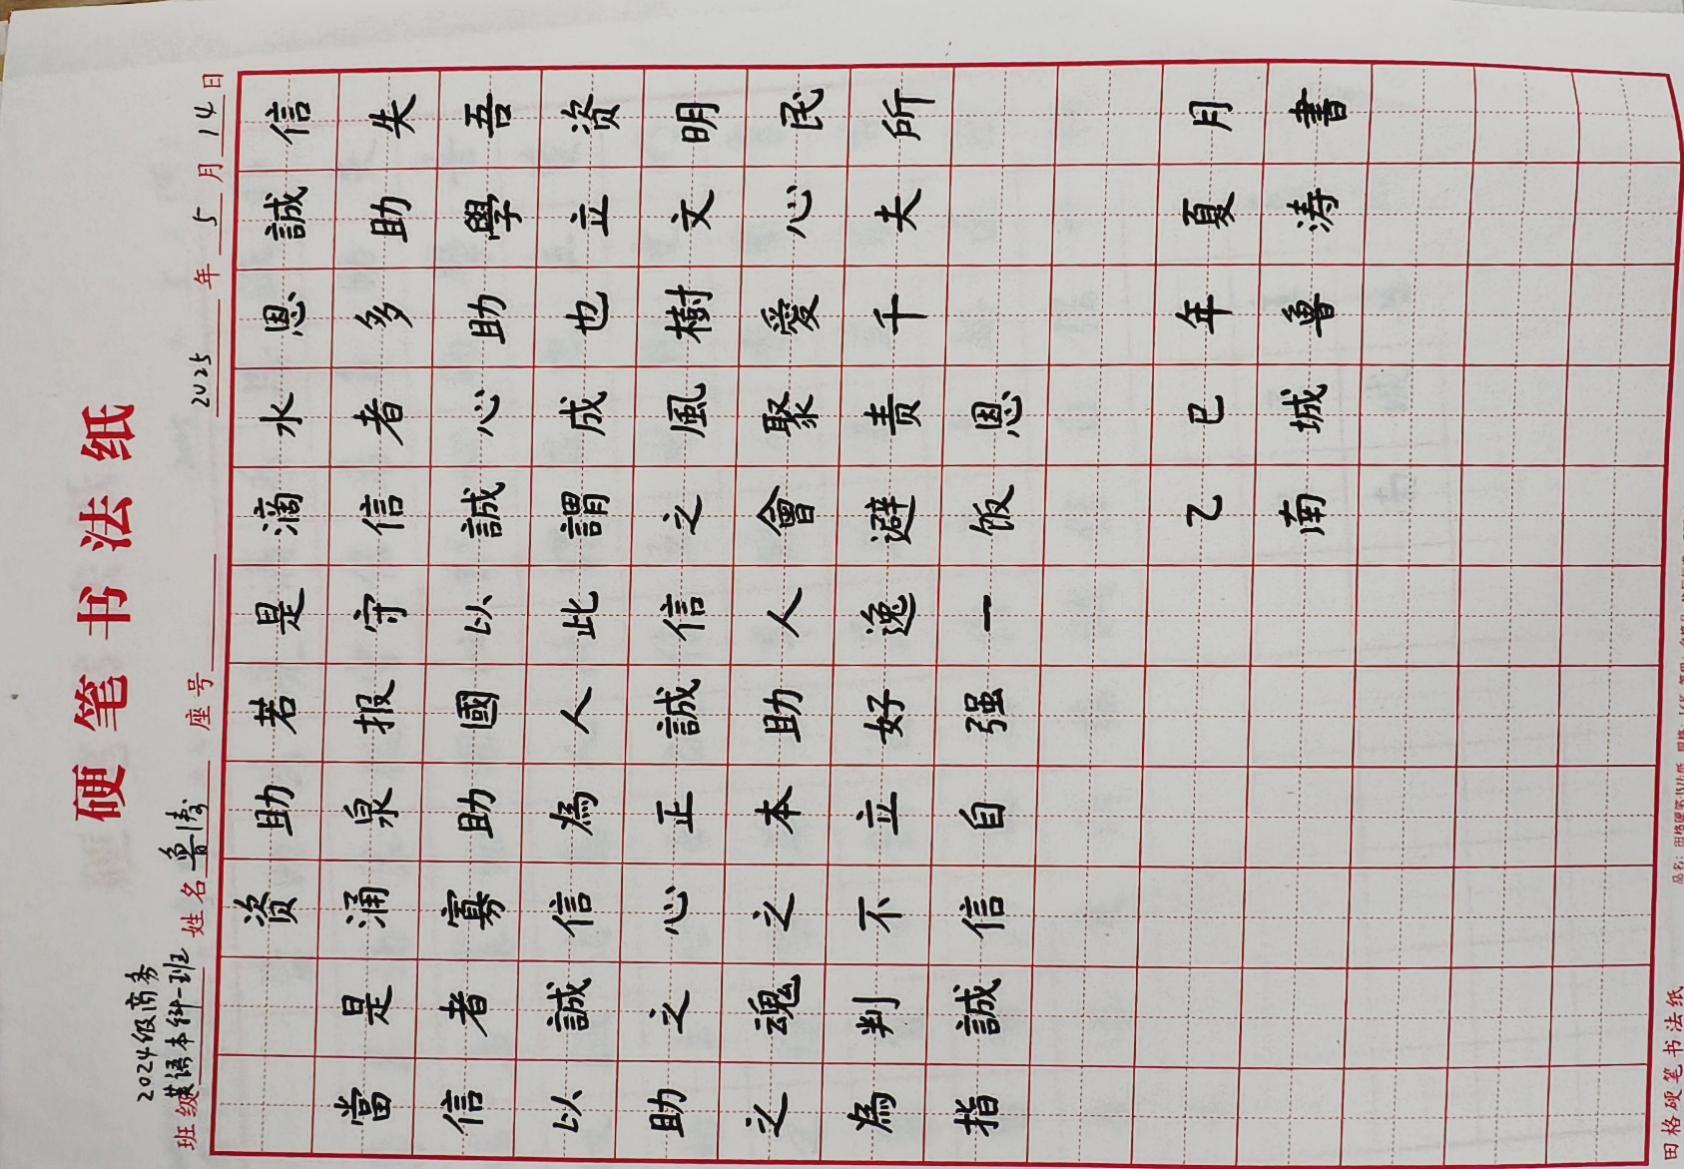 硬笔书法纸
2024级商务
班级 英语本科一班 姓名 鲁涛 座号 2025 年 5 月 14 日
资助若是滴水恩誠信
當是涌泉报守信者多助失
信者寡助國以誠心助學吾
以誠信為人此謂成也立资
助之心正誠信之風樹文明
之魂之本助人會聚愛心民
為判不立好逸避责千夫所
指誠信自强一饭恩
乙巳年夏月
南城鲁涛書
田格硬笔书法纸